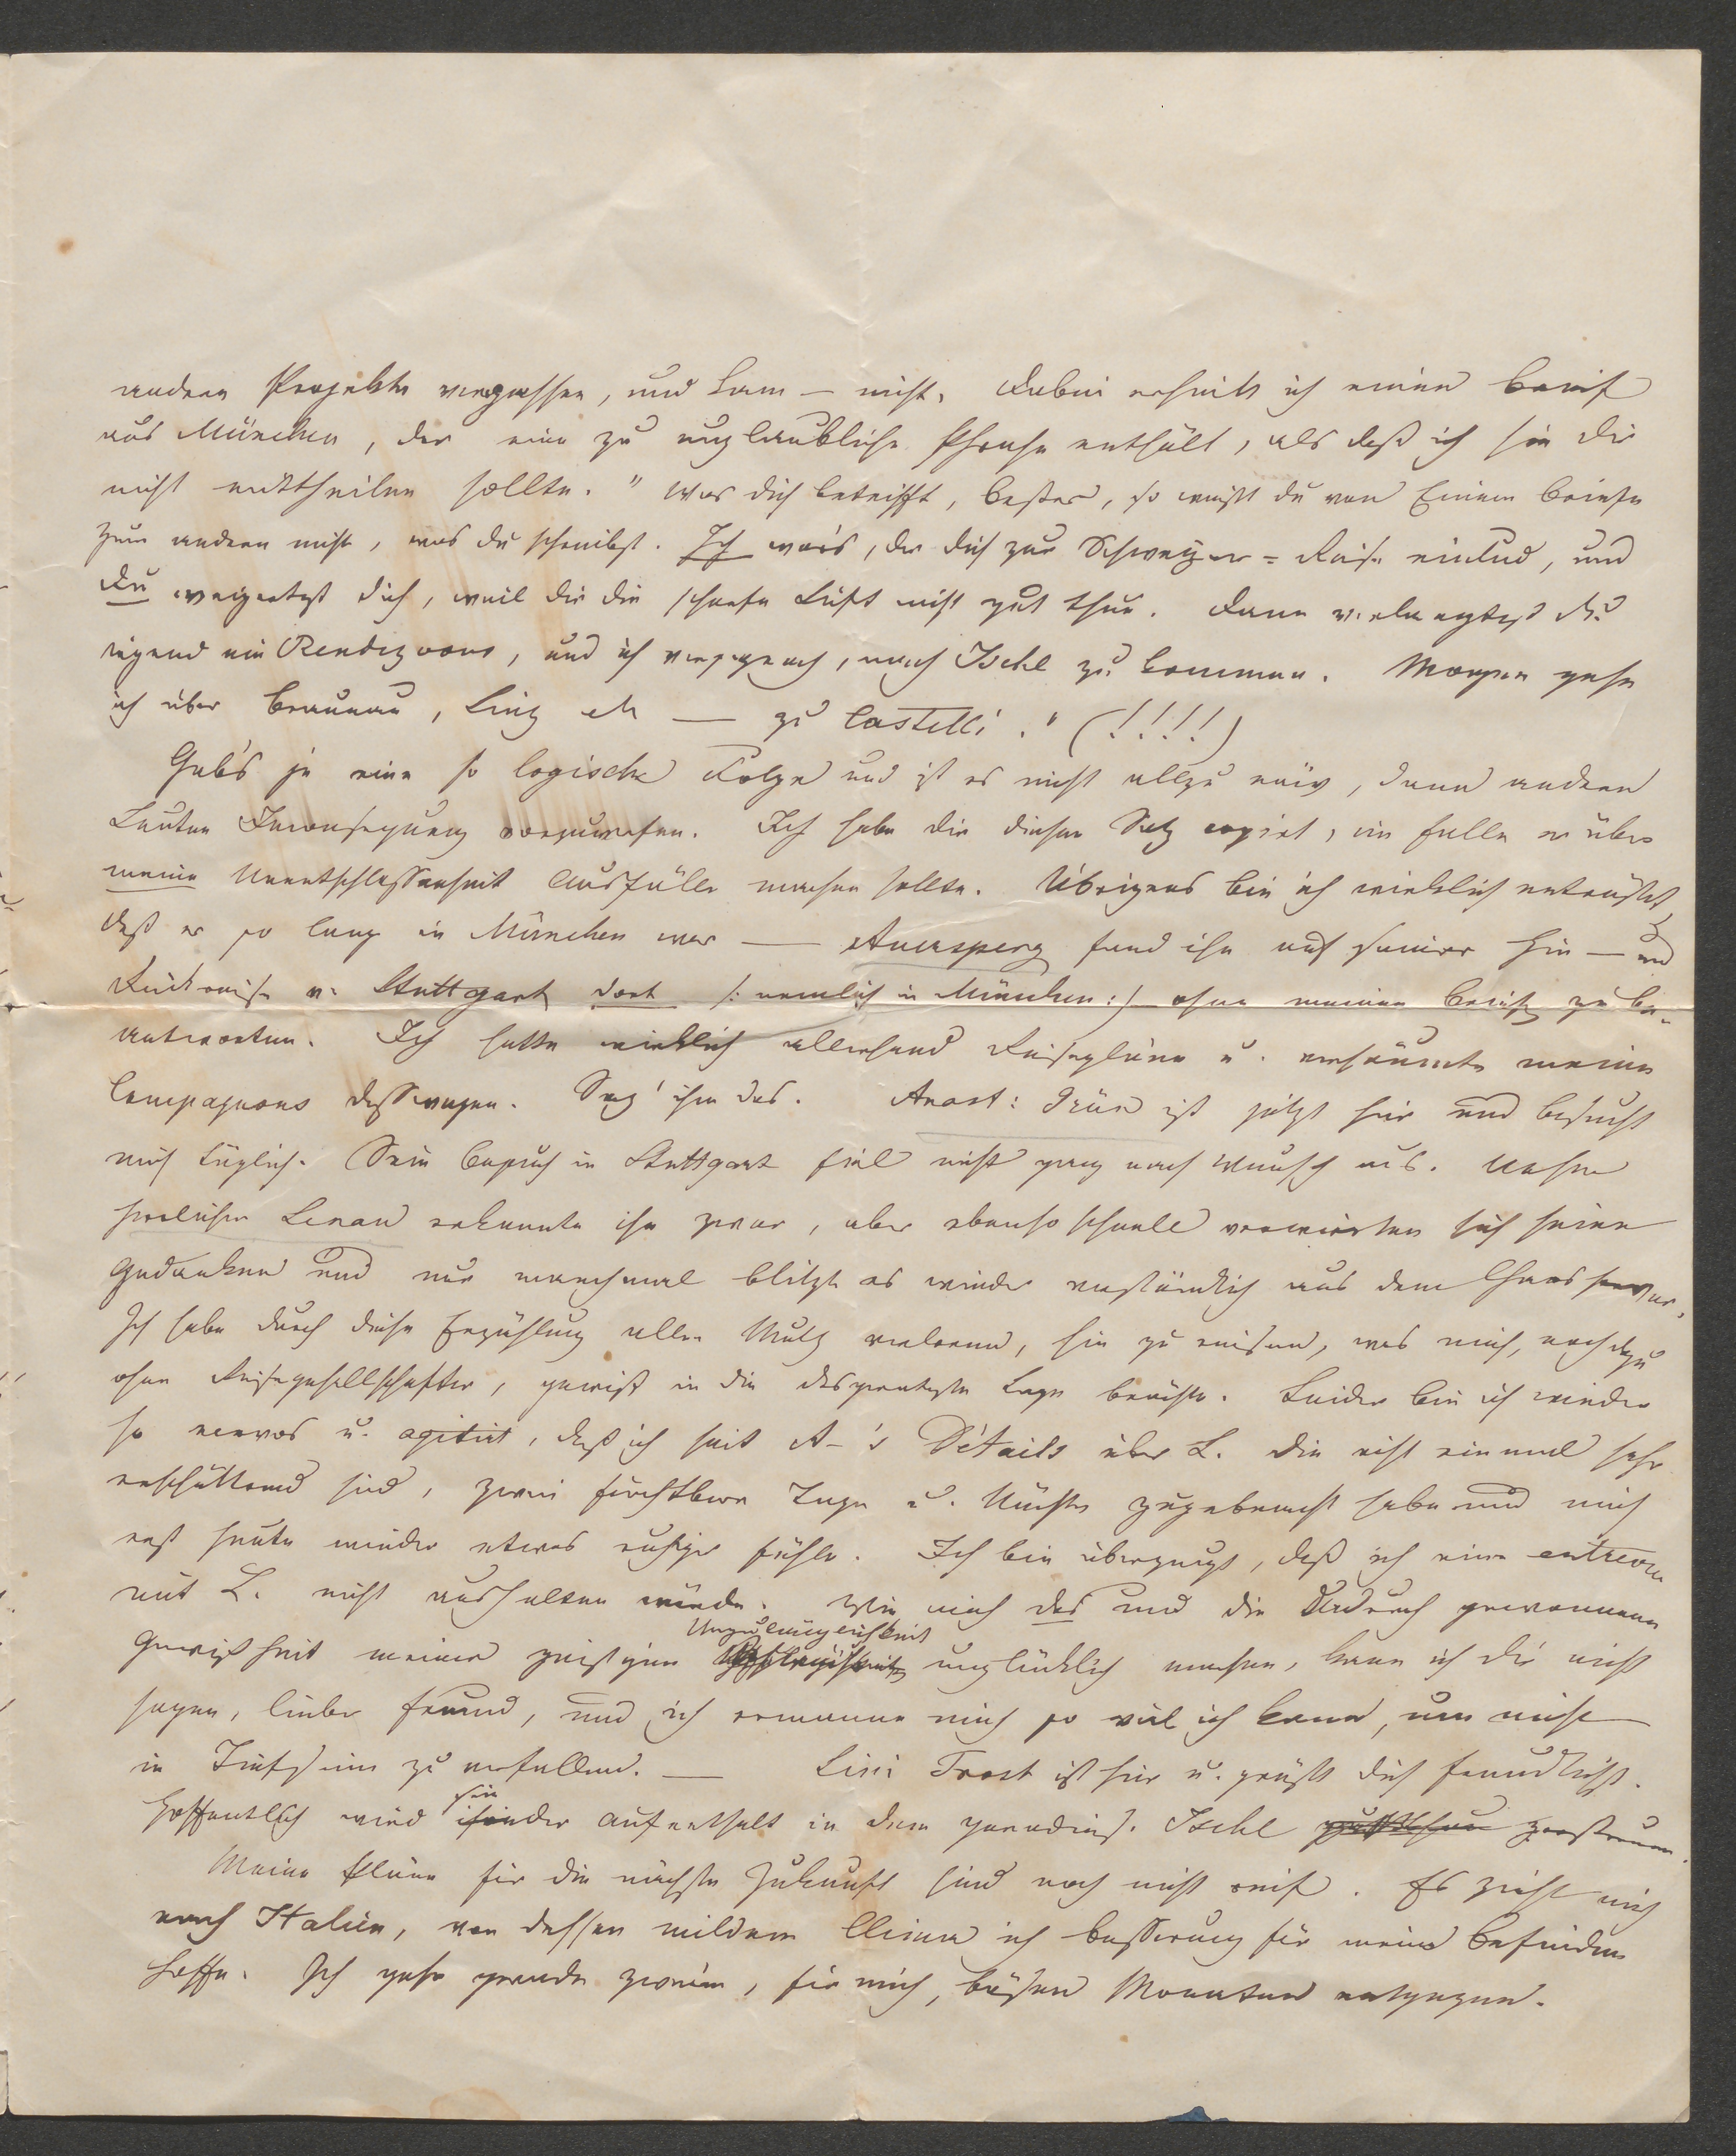 andern Projekte vergessen, und kam — nicht. Dabei erhielt ich einen Brief
aus München, der eine zu unglaubliche Phrase enthält, als daß ich sie dir
nicht mittheilen sollte. " Was dich betrifft, Bester, so weißt du von Einem Briefe
zum andern nicht, was du schreibst. Ich war's, der dich zur Schweizer = Reise einlud, und
Du weigertest dich, weil dir die scharfe Luft nicht gut thue. Dann verlangtest du
irgend ein Rendezvous, und ich versprach, nach Ischl zu kommen. Morgen gehe
ich über Braunau, Linz etc — zu Castelli." (!!!!)
Gab's je eine so logische Folge und ist es nicht allzu naiv, dann andern
Leuten Inconsequenz vorzuwerfen. Ich habe dir diesen Satz copirt, im Falle er über
meine Unentschlossenheit Ausfälle machen sollte. Übrigens bin ich wirklich entrüstet,
daß er so lang in München war — Auersperg fand ihn auf seiner Hin — und
Rückreise v. Stuttgart dort /: nemlich in München :/ ohne meinen Brief zu be-
antworten. Ich hatte wirklich allerhand Reisepläne u. versäumte meine
Compagnons deßwegen. Sag' ihm das. Anast: Grün ist jetzt hier und besucht
mich täglich. Sein Besuch in Stuttgart fiel nicht ganz nach Wunsch aus. Unser
herrlicher Lenau erkannte ihn zwar, aber ebenso schnell verwirrten sich seine
Gedanken und nur manchmal blitzt es wieder verständlich aus dem Chaos hervor.
Ich habe durch diese Erzählung allen Muth verloren, hin zu reisen, was mich, noch dazu
ohne Reisegesellschafter, gewiß in die desperateste Lage brächte. Leider bin ich wieder
so nervos u. agitirt, daß ich seit A-'s Détails über L. die nicht einmal sehr
erschütternd sind, zwei furchtbare Tage u. Nächte zugebracht habe und mich
erst heute wieder etwas ruhiger fühle. Ich bin überzeugt, daß ich eine entrevue
mit L. nicht aushalten würde. Wie mich das und die dadurch gewonnene
Gewißheit meiner geistigen Unzulänglichkeit unglücklich machen, kann ich dir nicht
sagen, lieber Freund, und ich ermanne mich so viel ich kann, um nicht
in Tiefsinn zu verfallen. — Lini Trost ist hier u. grüßt dich freundlichst.
Hoffentlich wird sie der Aufenthalt in dem paradies. Ischl zerstreuen.
Meine Pläne für die nächste Zukunft sind noch nicht reif. Es zieht mich
nach Italien, von dessen mildem Clima ich Besserung für mein Befinden
hoffe. Ich gehe gerade zweien, für mich, bösen Monaten entgegen.